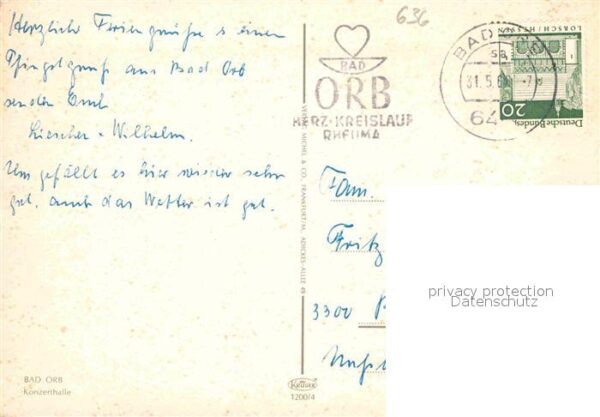 Herzliche Feriengrüße u einen
Pfingstgruß aus Bad Orb
senden Euch
Lieschen - Wilhelm.
Uns gefällt es hier wieder sehr
gut. auch das Wetter ist gut.
BAD ORB
Konzerthalle
636
BAD
ORB
HERZ-KREISLAUF
RHEUMA
BAD ORB
31.5.6
64
LORSCH/HESSEN
20
Deutsche Bundes
VERLAG MICHEL & CO., FRANKFURT/M. ADICKES-ALLEE 45
Fam.
Fritz
3300
Krüger
1200/4
privacy protection
Datenschutz